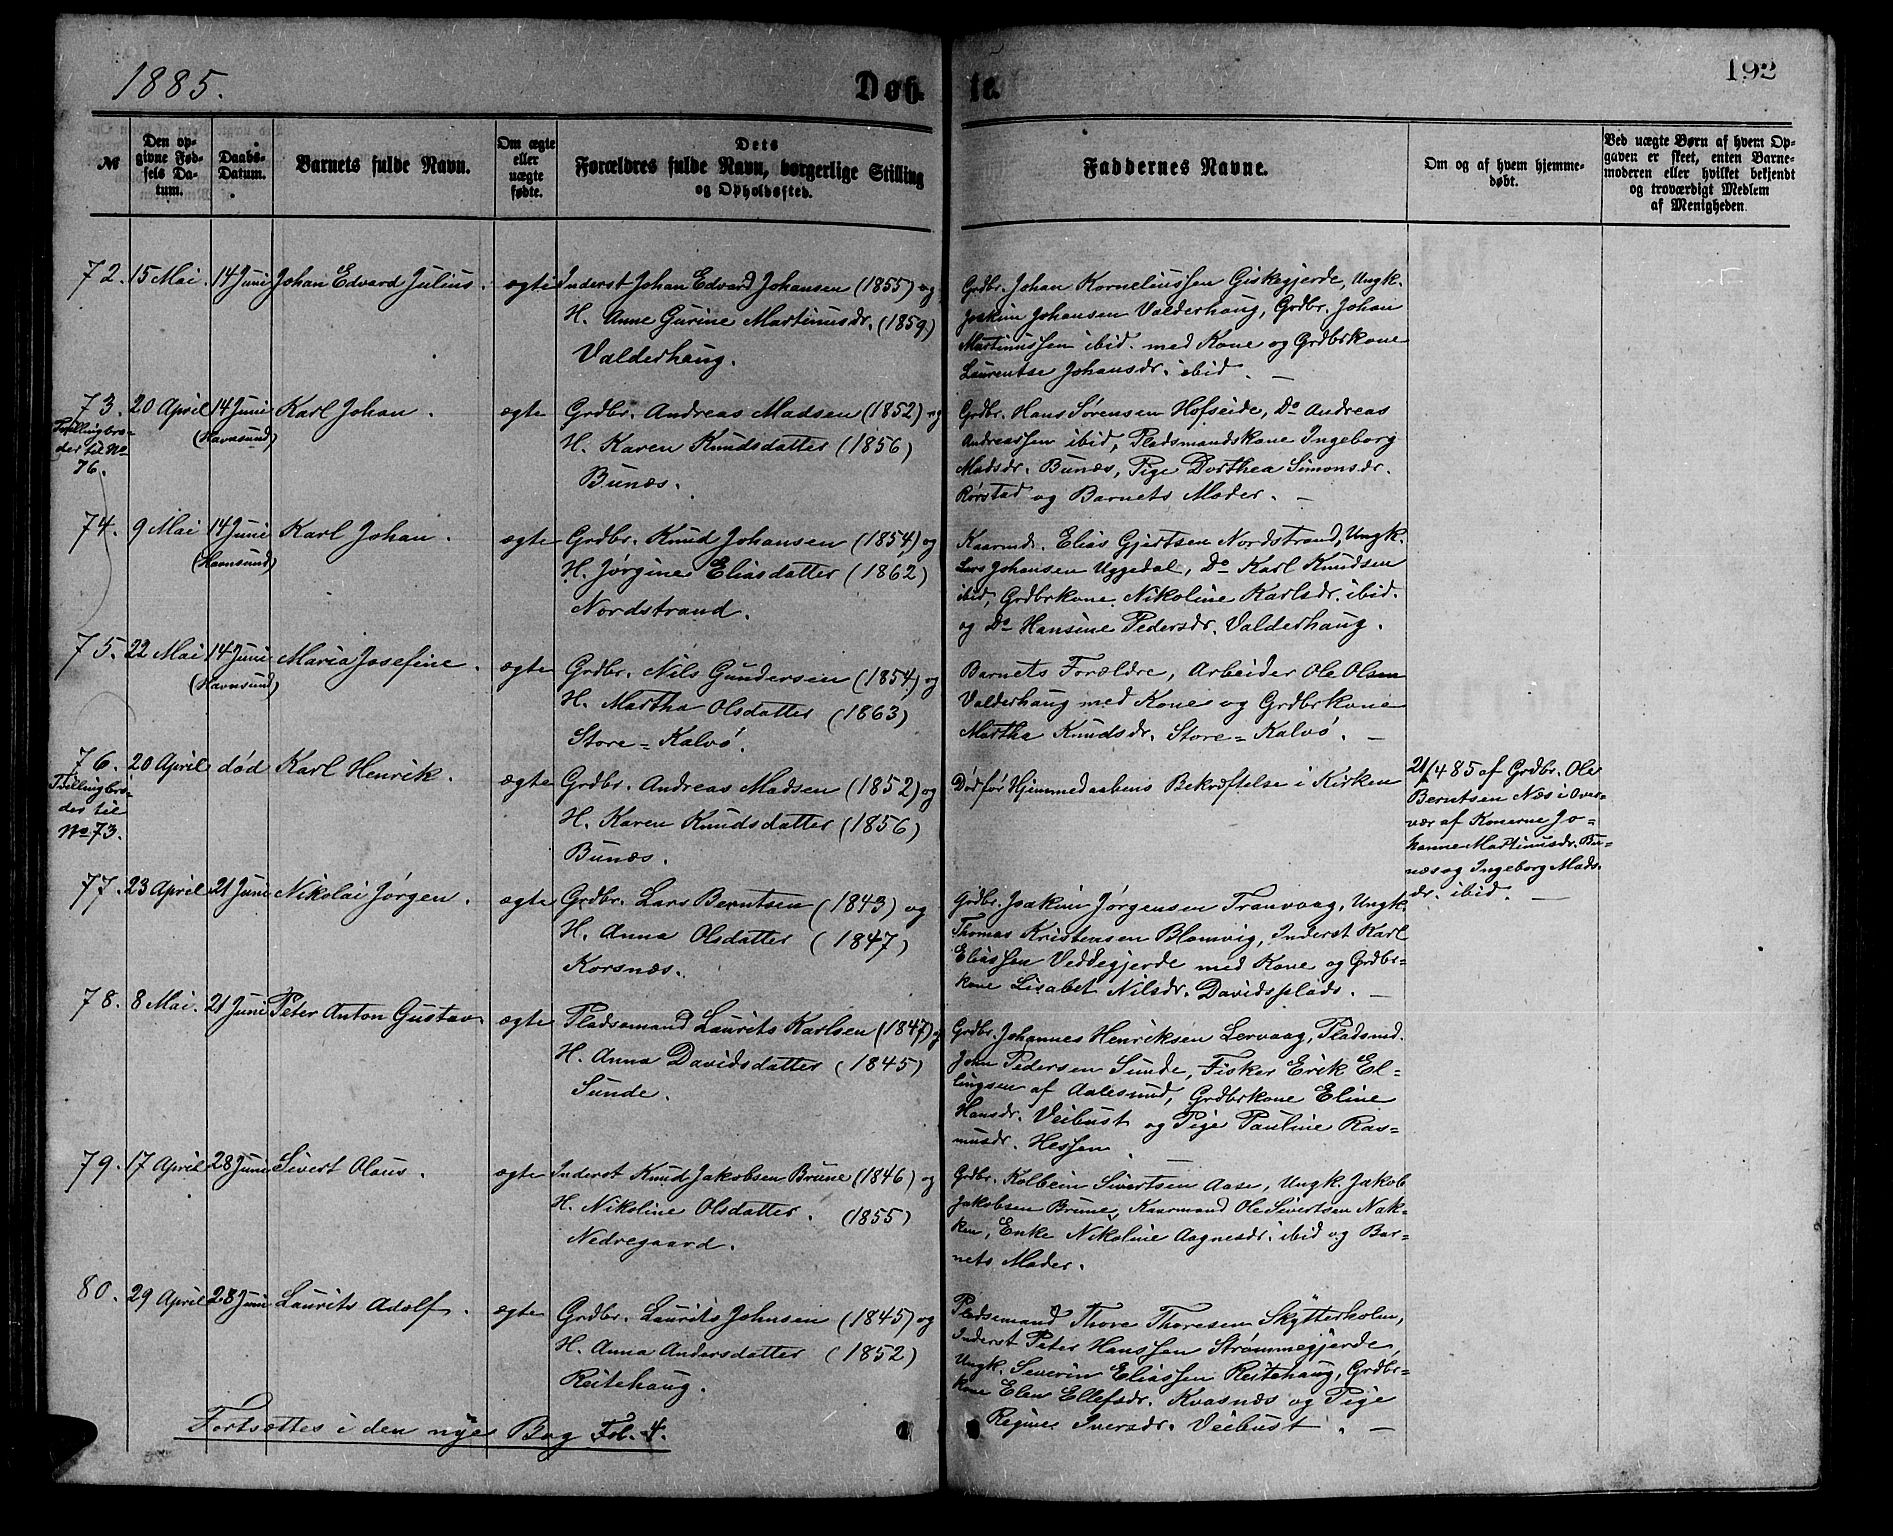 1885.
Døb- te.
192
№
Den op-
givne Fød-
sels Da-
tum.
Daabs-
Datum.
Barnets fulde Navn.
Om ægte
eller
uægte
fødte.
Dets
Forældres fulde Navn, borgerlige Stilling
og Opholdssted.
Faddernes Navne.
Om og af hvem hjemme-
døbt.
Ved uægte Børn af hvem Op-
gaven er skeet, enten Barne-
moderen eller hvilket bekjendt
og troværdigt Medlem
af Menigheden.
72. 15 Mai. 14 Juni Johan Edvard Julius. ægte Inderst Johan Edvard Johansen (1855) og
H. Anne Gurine Martinusdr. (1859)
Valderhaug.
Grdbr. Johan Kornelius̈sen Giskegjerde, Ungk.
Joakim Johansen Valderhaug, Grdbr. Johan
Martinussen ibid. med Kone og Grdbrkone
Laurentse Johansdr. ibid. —
73. 20 April 14 Juni Karl Johan. ægte Grdbr. Andreas Madsen (1852) og
Tvillingbro-
der til No
76.
(Havnsund)
H. Karen Knudsdatter (1856)
Bunæs.
Grdbr. Hans Sørensen Hofseide, Do Andreas
Andreassen ibid, Pladsmandskone Ingeborg
Madsdr. Bunæs, Pige Dorthea Simonsdr.
Rørstad og Barnets Moder. —
74. 9 Mai 14 Juni Karl Johan. ægte Grdbr. Knud Johansen (1854) og
(Havnsund)
H. Jørgine Eliasdatter (1862)
Nordstrand.
Kaarmd. Elias Gjertsen Nordstrand, Ungk.
Lars Johansen Uggedal, Do Karl Knudsen
ibid, Grdbrkone Nikoline Karlsdr. ibid.
og Do Hansine Pedersdr. Valderhaug.
75. 22 Mai 14 Juni Maria Josefine. ægte Grdbr. Nils Gundersen (1854) og
(Havnsund)
H. Martha Olsdatter (1863)
Store=Kalvö.
Barnets Forældre, Arbeider Ole Olsen
Valderhaug med Kone og Grdbrkone
Martha Knudsdr. Store=Kalvö. —
76. 20 April død Karl Henrik. ægte Grdbr. Andreas Madsen (1852) og
Tvillingbro-
der til
No 73.
H. Karen Knudsdatter (1856)
Bunæs.
Død før Hjemmedaabens Bekræftelse i Kirken
21/4 85 af Grdbr. Ole
Berntsen Næs i Over-
vær af Konerne Jo-
hanne Martinusdr. Bu-
næs og Ingeborg Mads-
dr. ibid. —
77. 23 April 21 Juni Nikolai Jørgen. ægte Grdbr. Lars Berntsen (1843) og
H. Anna Olsdatter (1847)
Korsnæs.
Grdbr. Joakim Jørgensen Tranvaag, Ungk.
Thomas Kristensen Blomvig, Inderst Karl
Eliassen Veddegjerde med Kone og Grdbr-
kone Lisabet Nilsdr. Davidsplads. —
78. 8 Mai. 21 Juni Peter Anton Gustav. ægte Pladsemand Laurits Karlsen (1847) og
H. Anna Davidsdatter (1845)
Sunde.
Grdbr. Johannes Henriksen Lervaag, Pladsmd.
John Pedersen Sunde, Fisker Erik El-
lingsen af Aalesund, Grdbrkone Eline
Hansdr. Veibust og Pige Pauline Ras-
musdr. Hessen.
79. 17 April 28 Juni Sivert Olaus. ægte Inderst Knud Jakobsen Brune (1846) og
H. Nikoline Olsdatter. (1855)
Nedregaard.
Grdbr. Kolbein Sivertsen Aase, Ungk. Jakob
Jakobsen Brune, Kaarmand Ole Sivertsen Nak-
ken, Enke Nikoline Aagnesdr. ibid og Bar-
nets Moder.
80. 29 April 28 Juni Laurits Adolf. ægte Grdbr. Laurits Johnsen (1845) og
H. Anna Andersdatter (1852)
Reitehaug.
Pladsemand Thore Thoresen Skytterholm,
Inderst Peter Hanssen Strømmegjerde,
Ungk. Severin Eliassen Reitehaug, Grdbr-
kone Elen Ellefsdr. Kvasnæs og Pige
Regine Iversdr. Veibust. —
Fortsættes i den nye Bog Fol. 4.